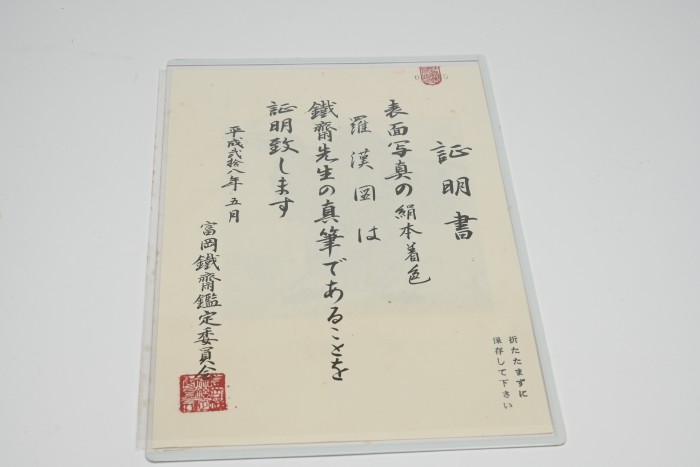 証明書
表面写真の絹本着色
羅漢図は
鐵齋先生の真筆であることを
証明致します
平成弐拾八年五月
富岡鐵齋鑑定委員会
折たたまずに
保存して下さい